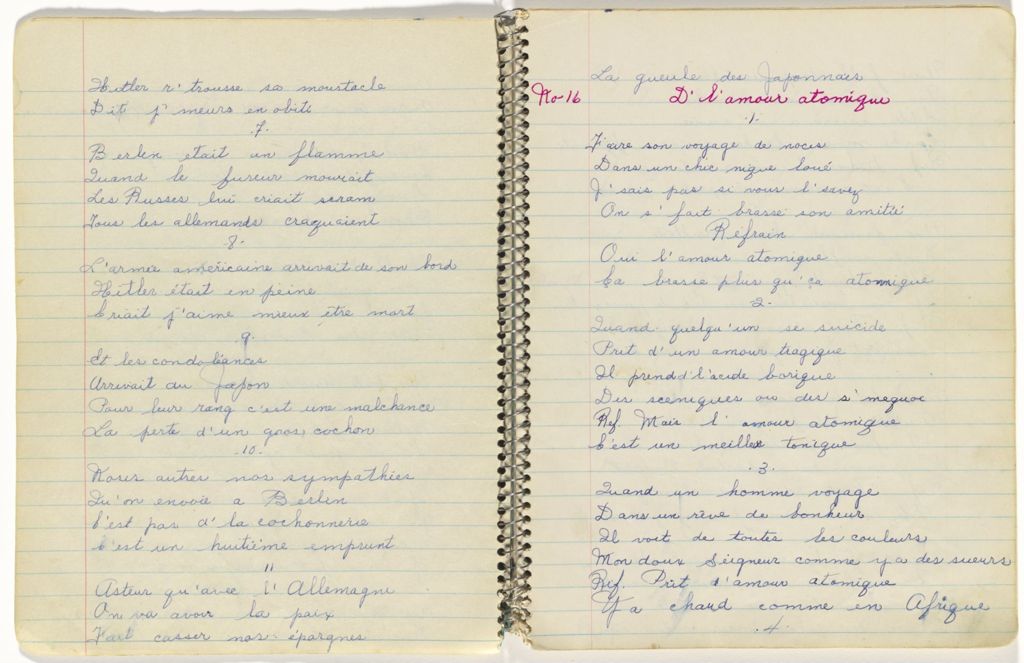 Hitler r'trousse sa moustache
Dit j'meurs en obitt
.7.
Berlin était un flamme
Quand le fureur mourait
Les Russes lui criait scram
Tous les allemands craquaient
8.
L'armée américaine arrivait de son bord
Hitler était en peine
Criait j'aime mieux être mort
9.
Et les condoléances
Arrivait du Japon
Pour leur rang c'est une malchance
La perte d'un gros cochon
.10.
Nous autres nos sympathies
Qu'on envoie a Berlin
C'est pas d'la cochonnerie
C'est un huitième emprunt
11
Asteur qu'avec l'Allemagne
On va avoir la paix
Faut casser nos épargnes
La gueule des Japonnais
No-16 D'l'amour atomique
.1.
Faire son voyage de noces
Dans un chic nique loué
J'sais pas si vous l'savez
On s'fait brassé son amitié
Refrain
Oui l'amour atomique
Ca brasse plus qu'ça atomnique
2.
Quand quelqu'un se suicide
Prit d'un amour tragique
Il prend d'l'acide borique
Des sceniques ou des
Ref. Mais l'amour atomique
C'est un meilleu tonique
.3.
Quand un homme voyage
Dans un rêve de bonheur
Il voit de toutes les couleurs
Mon doux Seigneur comme y a des sueurs
Ref. Prit d'amour atomique
Y a chaud comme en Afrique
.4.